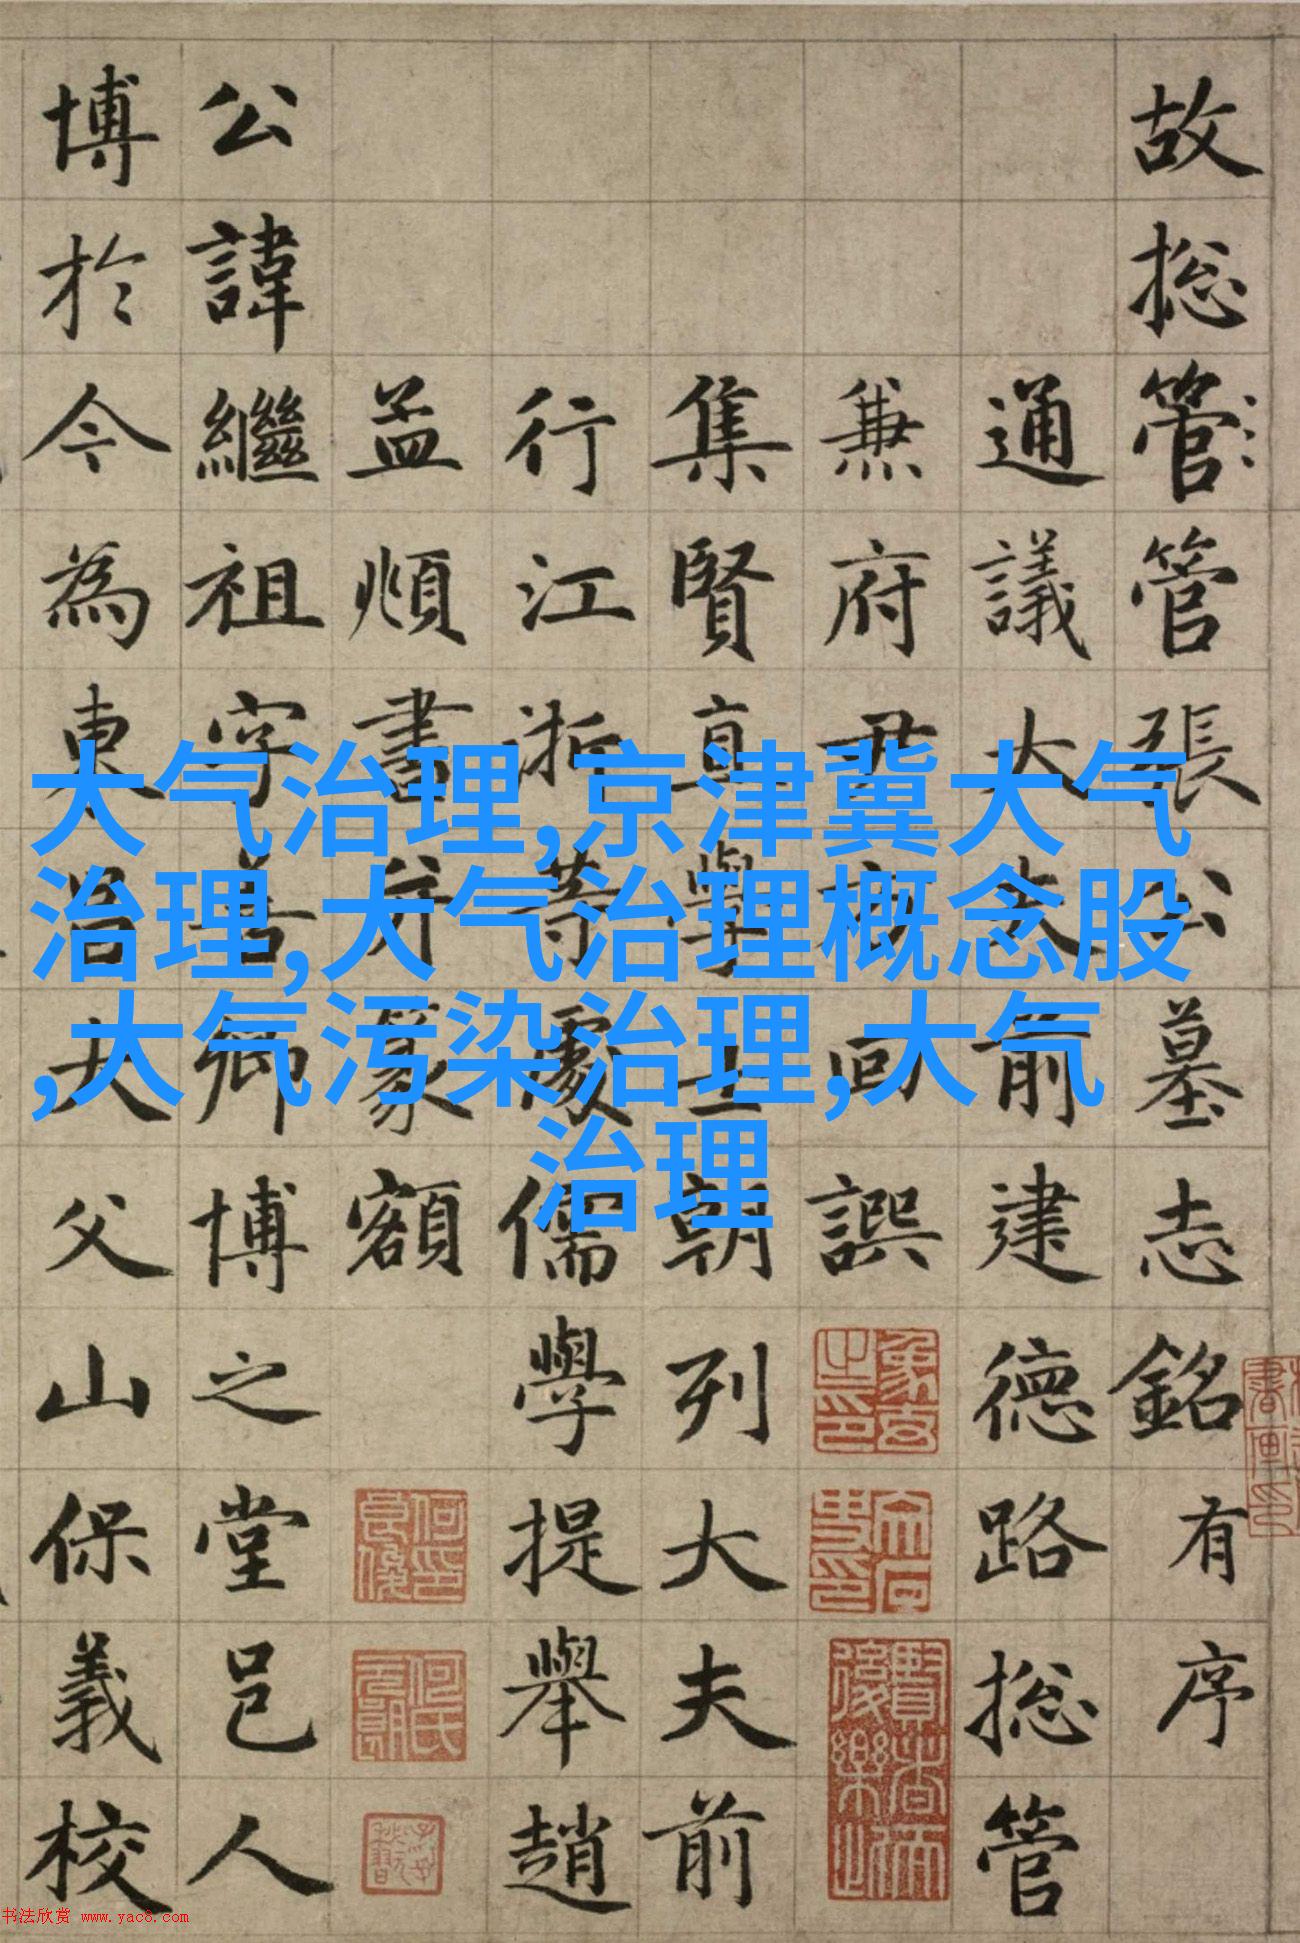 故総管管張公墓志銘有序
通議大夫前建德路総管
兼府尹方回譔
集賢直學士朝列大夫前
行江浙等處儒學提舉趙
孟頫書并篆額
公諱繼祖字善卿博之堂邑人
博於今為東昌大父山保義校
大气治理,京津冀大气
治理,大气治理概念股
,大气污染治理,大气
治理
书法欣赏 www.yac8.com